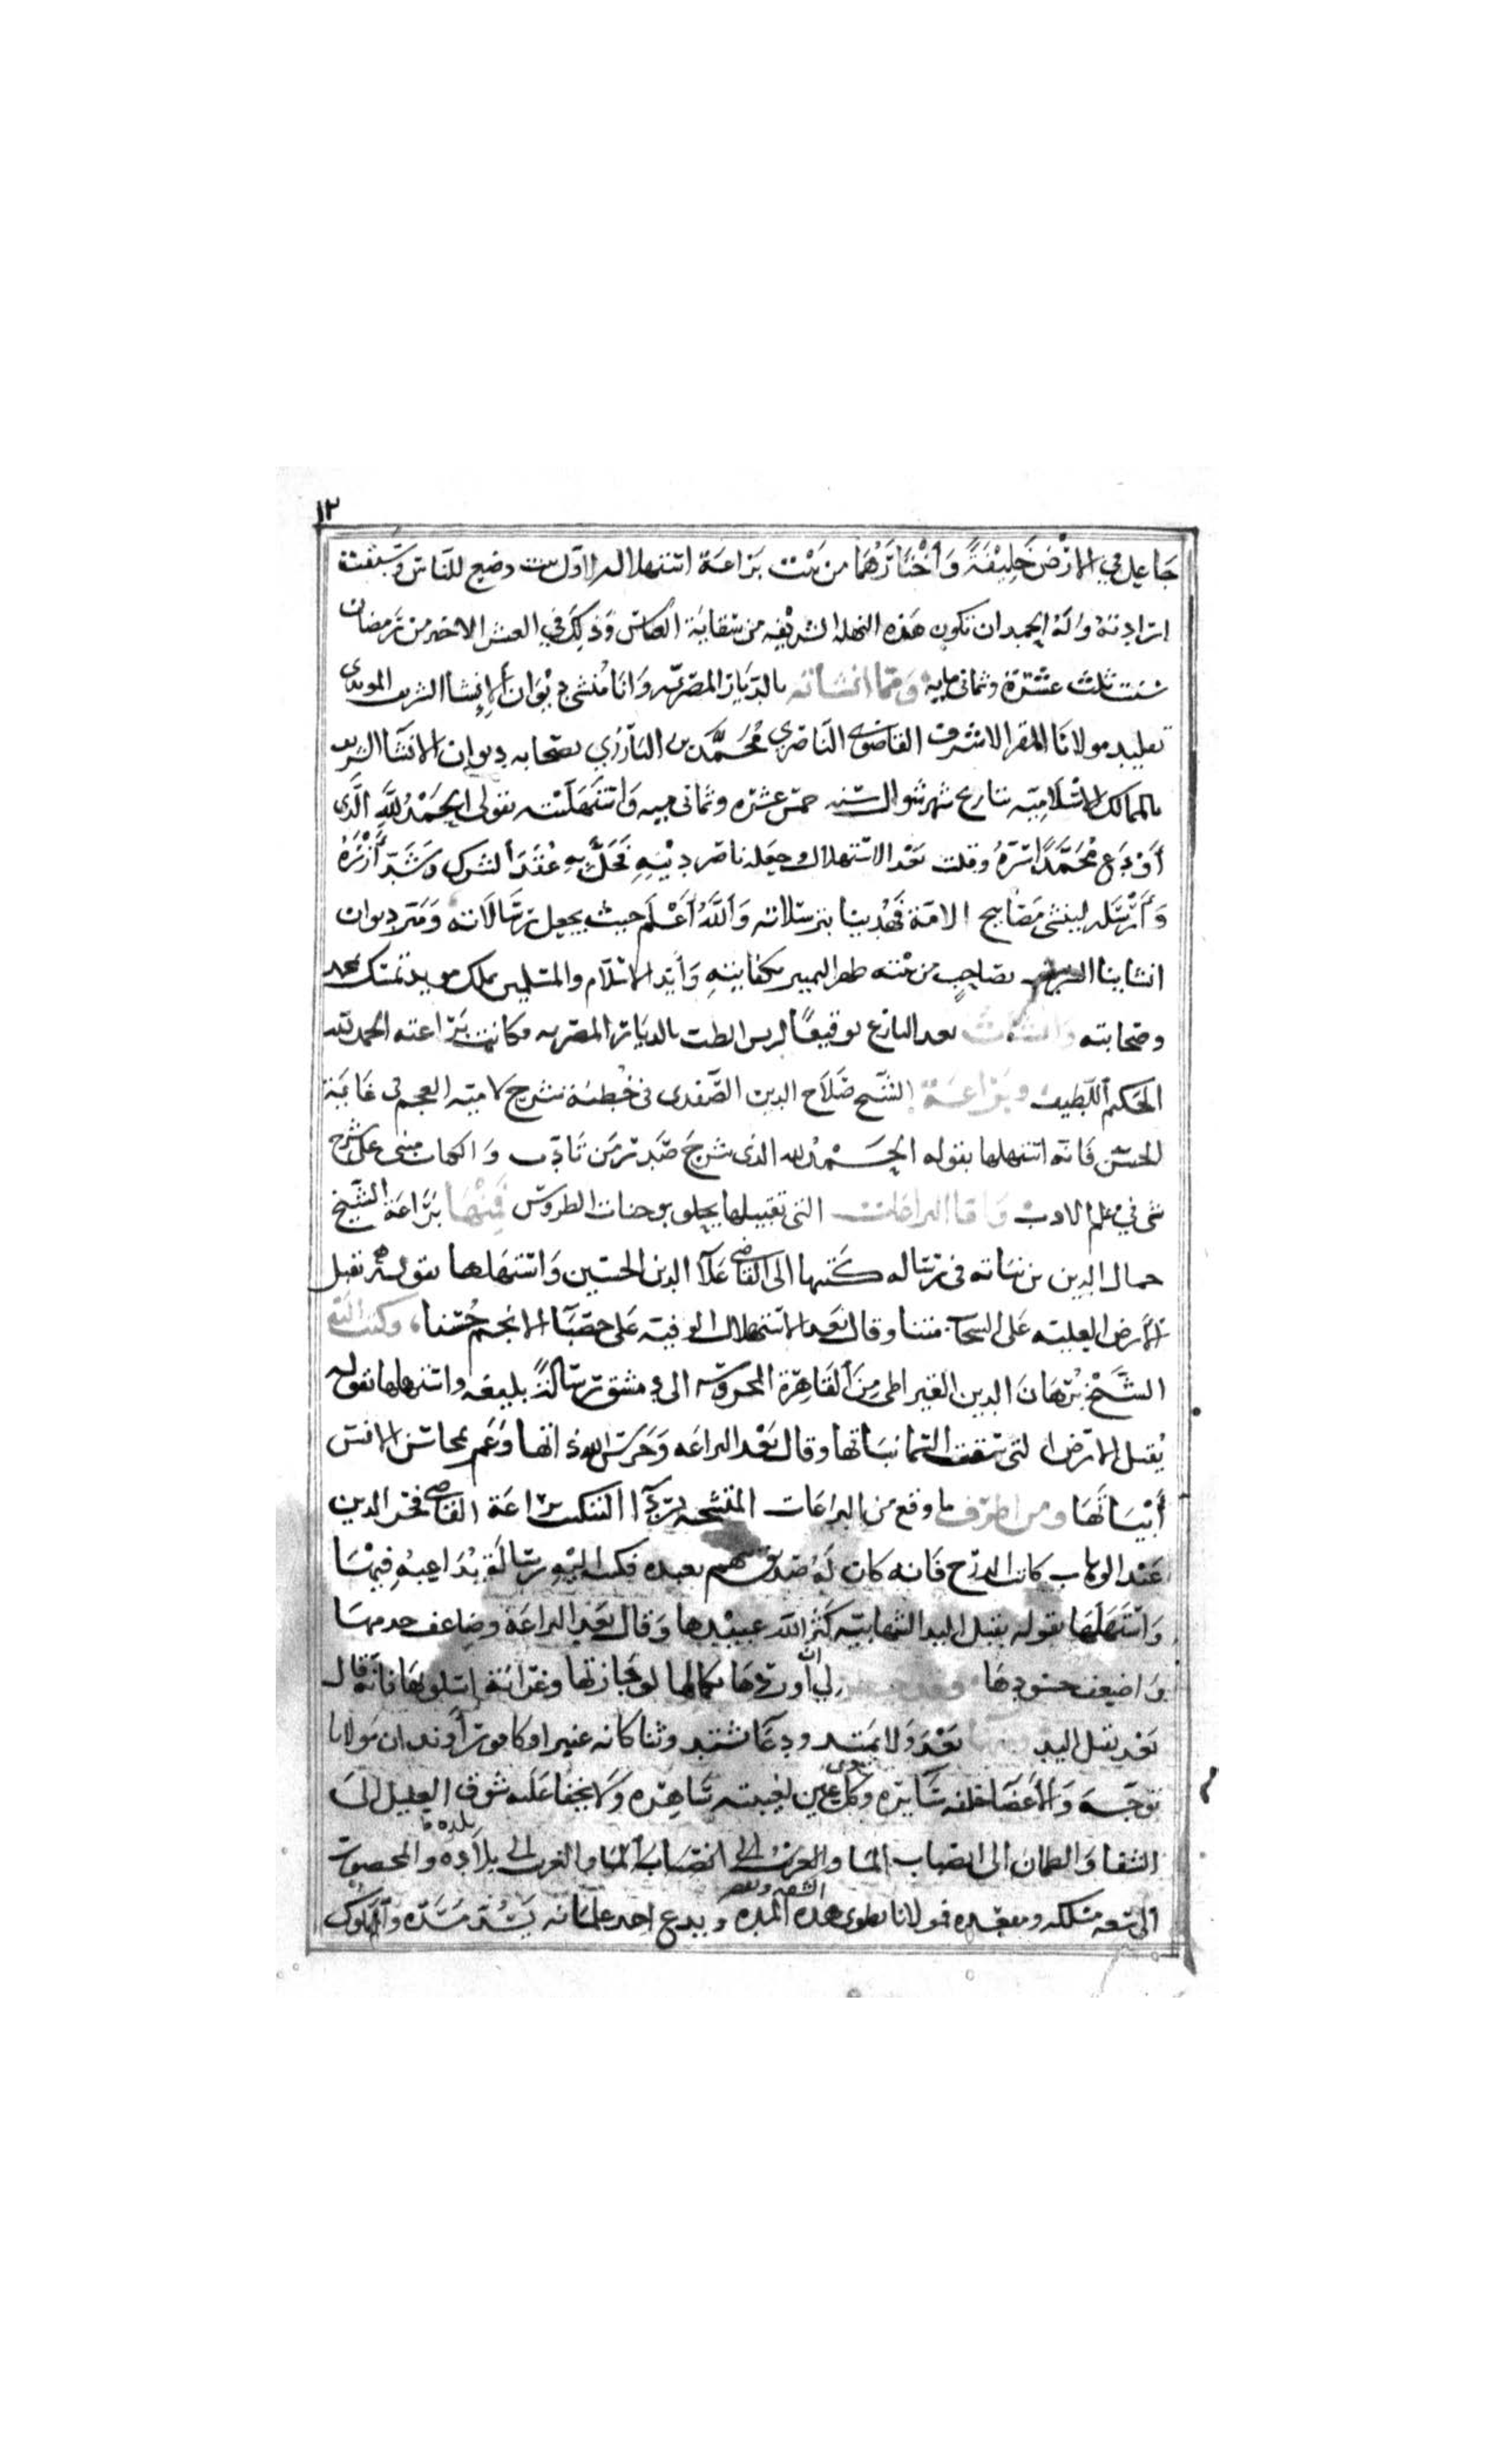 ١٢
جَاعِل في الارْضَ خَلِيْفَةً وَاخْتَارَهُمَا من بَيْت بَرَاعَة استهلاله الاوّل بيت وضع للناس وسبقت
ارادته وله الحمد ان تكون هذه النهلة الشريفه من سقاية العباس وَذلِكَ في العشر الاخير من رَمضان
سنت ثلث عشرة وثمانى مايه وَمّما انشاته بالدّيَار المصريّه وَانَا مُنشى دِيْوَان الإنشا الشريف المويدى
تقليد مولانا المقر الاشرف القاضوى النّاصرى مُحُمَّد بن البَارزي بصحابه ديوان الانشا الشريف
بالممالك الاسْلَاميّه بتاريخ شهر شوال سنه خمس عشره وثمانى ميه وَاستَهلَلْته بقولى الحَمْدُ للهِ الّذى
أوْدَع مُحَمَّدًا سرّهُ وقلت بَعْد الاستهلال وجعله ناصر دِيْنِهِ فَحَلَّ بِهِ عُقَدَ الشرك وَشَدّ أزْرَهُ
وَأرْسَله لينشى مَصَابيح الامّة فَهُدِينا بترسلاته وَاللَّهُ أعْلَم حيث يجعل رسَالَاته وَسرّ ديوان
انشاينا الشريف بصاحِبٍ من بكفايتِهِ وَأيّد الاسْلام والمسلمين بملك مويد تمسّك بمحمد
وصحابته وَانشات بعد التاريخ توقيعًا لريس الطب بالديار المصريه فكانت بَرَاعته الحمد لله
الحَكيم اللّطيف وبَرَاعَة الشّيخ صَلَاح الدين الصّفدى فى خُطبة شرح لاميّه العجم فى غَايَة
الحسن فَانّه استهلها بقوله الحَــمْدُ لله الذى شرحَ صَدر مَن تَادّب وَ الكتاب مبنى على شرح
شى فِى علم الادب وَامّا البراعَات التى تقبيلها يحلو بوجنات الطروس فَمِنْهَا بَرَاعَة الشّيخ
جمال الدين بن نبَاته فى رسَاله كَتبها الى القاضى عَلَا الدين الحسين وَاستَهَلّها بقوله يقبل
الارض العليّه عَلى السحاب مننا وقال بعد الاستهلال الوفيّه عَلى حصبَا الانجم حُسْنا، وكتب
الشَّيْخ بُرْهَان الدين القيراطى مِنَ القَاهِرَة المحروسه الى دمشق رسَالةً بليغه واستهلها بقوله
يُقبل الارض التى سَقت السّما نبَاتها وقال بَعْد البراعَه وَحَرسَ الله ذاتها وَعَم بمحاسن الانس
أبْيَاتهَا ومن اظرَف ما وقع من البرَاعَات المتشحه برِدَآ التنكيت بَرَاعَة القاضى فخر الدين
عَبْد الوهاب كاتب الدرْج فَانه كان لَهُ صَديق بعبده فكتب اليْهِ رسَالةً يُدَاعِبُهِ فِيْهَا
وَاسْتَهَلّهَا بقوله يقبل اليد الشهابيّه كَثّر اللّه عبيدها وَقال بَعْد البراعَة وضاعف خدمها
وَاضعف حسُودهَا لِى ان أوردهَا بكمالها لوجازتها وغرَابَة اسلوبهَا فَانّه قال
بَعْد تقبيل اليد بَعْدَ وَلا يمتد ودعَا يشتد وثنا كانه عنبر او كافور أو ند ان مَولانا
توجّه وَالأعضَا خلفه سَايره وكل عَين لغيبته سَاهره وَلا يخفا عَليه شَوق العليل الى
الشفا وَالظمان الى انصباب المَا والغرب إلى انصباب المَا والغريب الى بلادِه والمحصور
الى سعه مسلكه ومعبَده فمولانا يطوى هذه المده ويدع احد غلمَانه يَسُدّ مَسَدّه وَالمَملوك